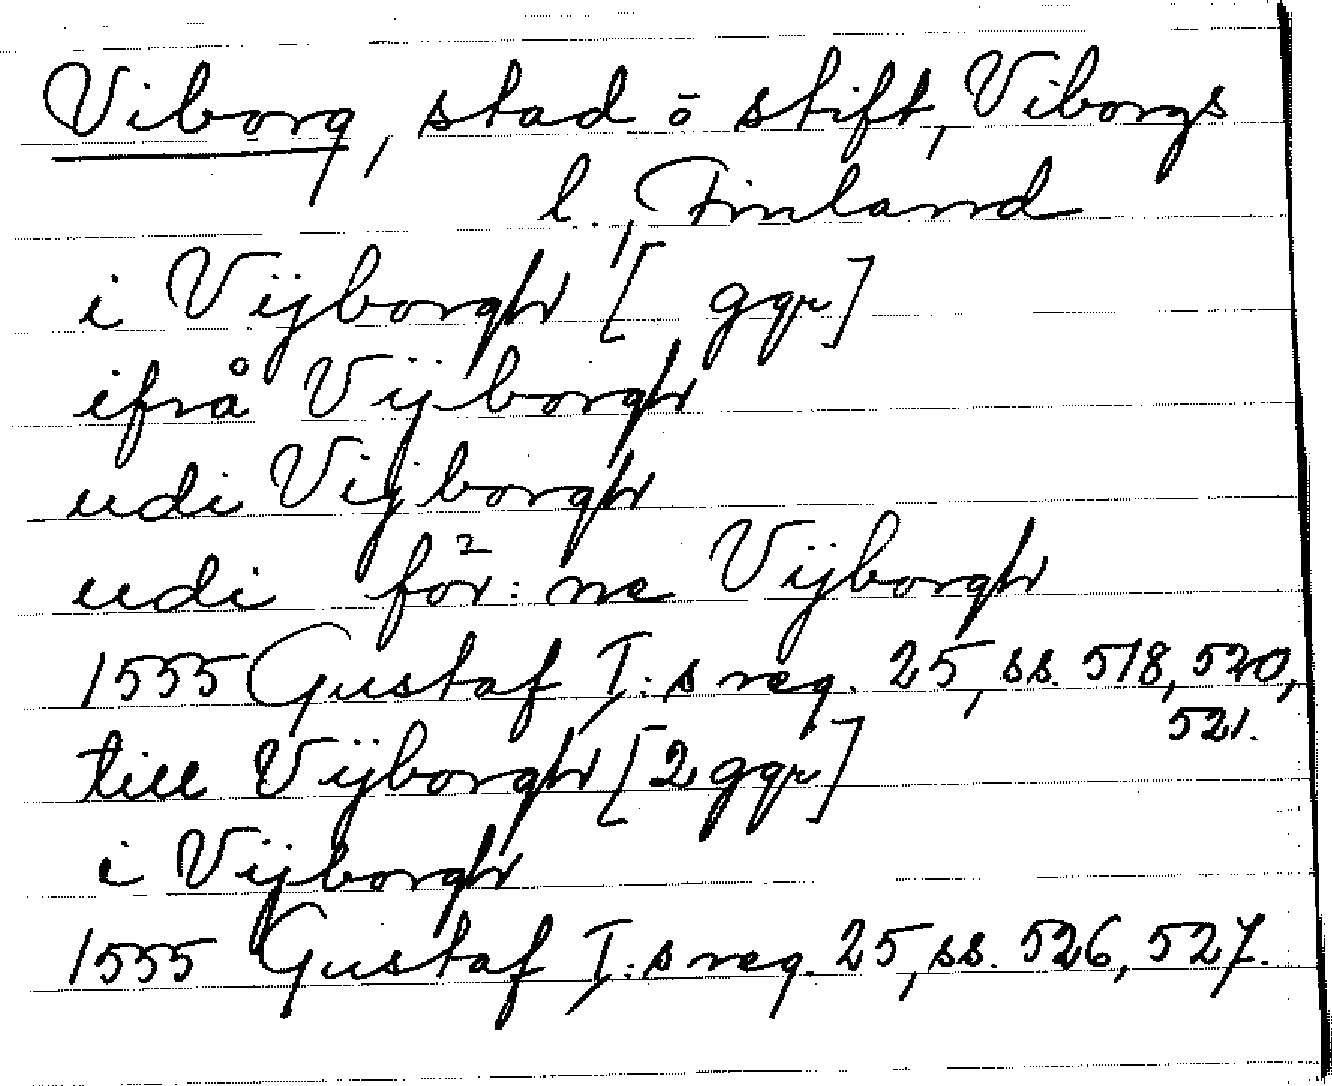 Viborg, stad ō stift, Viborgs
l., Finland
i Vijborgh [ ggr]
ifrå Vijborgh
udi Vijborgh
udi för:ne Vijborgh
1555 Gustaf I:s reg. 25, ss. 518, 520,
521.
till Vijborgh [2 ggr]
i Vijborgh
1555 Gustaf I:s reg. 25, ss. 526, 527.